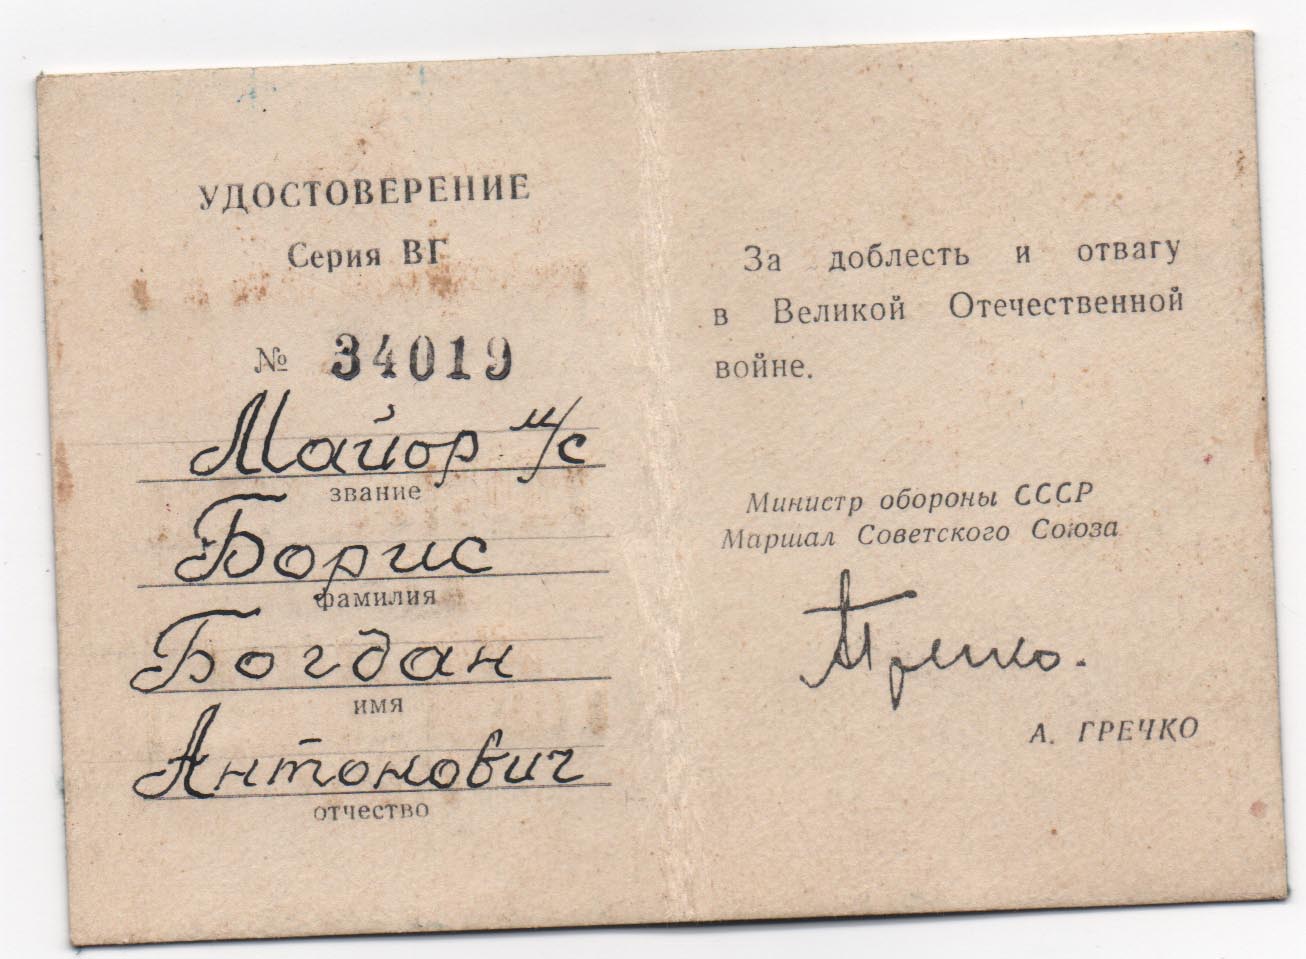 УДОСТОВЕРЕНИЕ
Серия ВГ
№ 34019
Майор м/с
звание
Борис
фамилия
Богдан
имя
Антонович
отчество
За доблесть и отвагу
в Великой Отечественной
войне.
Министр обороны СССР
Маршал Советского Союза
АГречко.
А. ГРЕЧКО